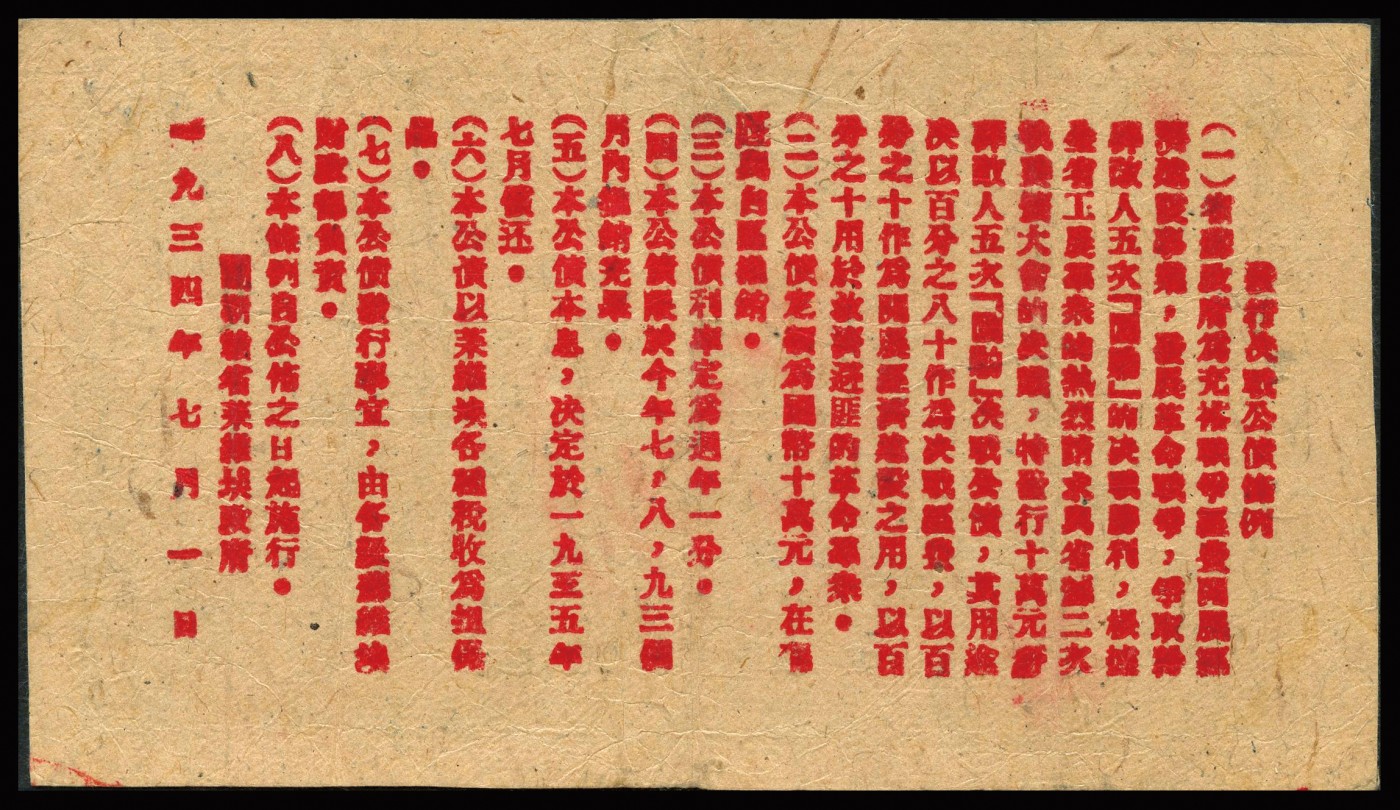 發行决戰公債條例
(一)省蘇政府為充裕戰爭經費開展經
濟建設事業,發展革命戰爭,爭取粉
碎敵人五次「圍勦」的决戰勝利,根據
全省工農羣眾的熱烈請求與省蘇二次
執委擴大會的决議,特發行十萬元粉
碎敵人五次「圍勦」决戰公債,其用途
决以百分之八十作為决戰經費,以百
分之十作為開展經濟建設之用,以百
分之十用於救濟避匪的革命羣眾。
(二)本公債定額為國幣十萬元,在
區與白區推銷。
(三)本公債利率定為週年一分。
(四)本公債限於今年七,八,九三個
月內推銷完畢。
(五)本公債本息,决定於一九三五年
七月償还。
(六)本公債以蘇維埃各種稅收為担保
品。
(七)本公債發行事宜,由各級蘇維埃
財政部負責。
(八)本條例自公佈之日起施行。
閩浙贛省蘇維埃政府
一九三四年七月一日